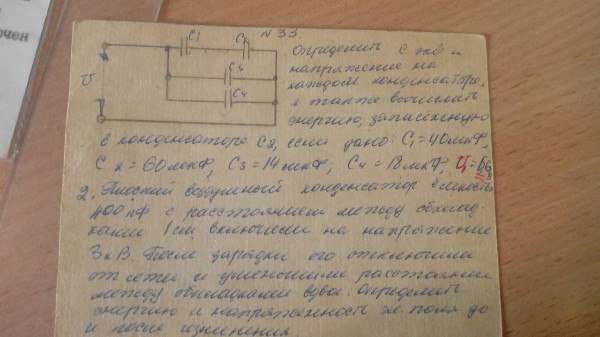 чен
N 33
C1
C2
C3
C4
U
Определить C экв и
напряжение на
каждом конденсаторе,
а также вычислить
энергию, запасённую
в конденсаторе C3, если дано: C1=40мкф,
C2=60мкф, C3=14мкф, C4=12мкф, U=
2. Плоский воздушный конденсатор ёмкость
400пф с расстоянием между обклад-
ками 1см включили на напряжение
3кВ. После зарядки его отключили
от сети и уменьшили расстояние
между обкладками вдвое. Определить
энергию и напряженность эл поля до
и после изменения